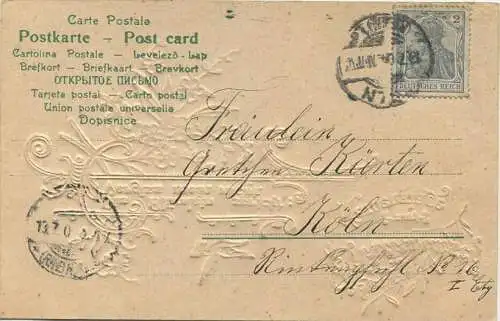 Carte Postale
Postkarte – Post card
Cartolina Postale – Levelező-Lap
Brefkort – Briefkaart – Brevkort
ОТКРЫТОЕ ПИСЬМО
Tarjeta postal – Carto postal
Union postale universelle
Dopisnice
2
DEUTSCHES REICH
Fräulein
Gretchen Kürten
Köln
No 16
I Etg